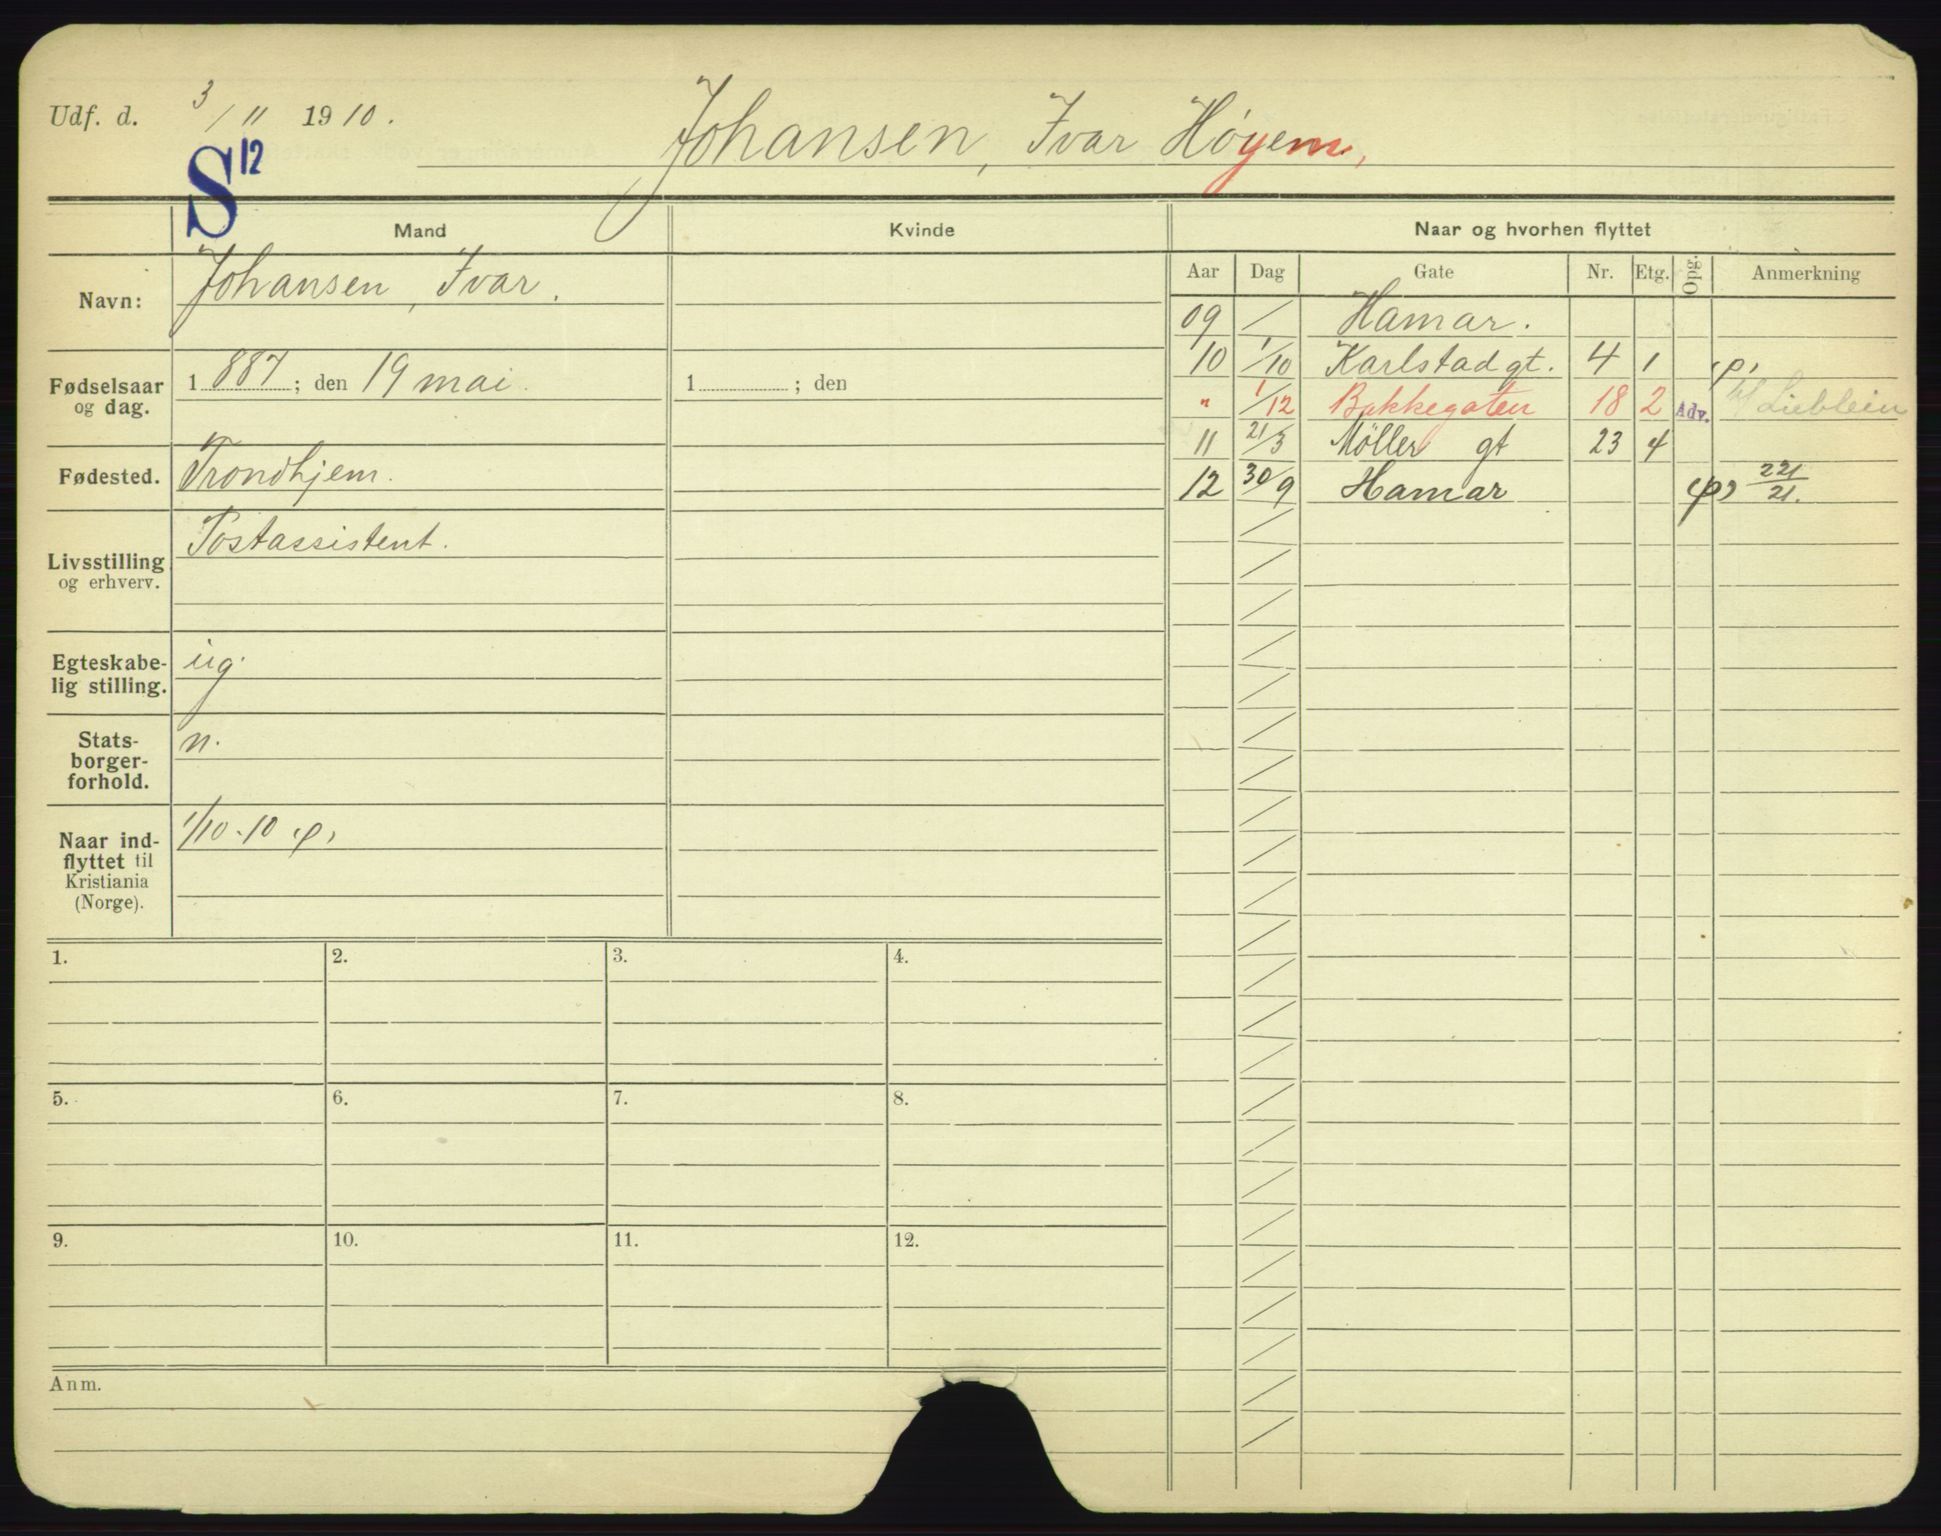 Udf. d. 3/11 1910.
Johansen, Ivar Høyem,
S 12
Mand
Kvinde
Naar og hvorhen flyttet
Navn: Johansen, Ivar.
Fødselsaar og dag. 1 887; den 19 mai. 1 ; den
Fødested. Trondhjem.
Livsstilling og erhverv. Postassistent.
Egteskabe-
lig stilling. ug.
Stats-
borger-
forhold. n.
Naar ind-
flyttet til
Kristiania
(Norge). 1/10.10 (p)
Aar Dag Gate Nr. Etg. Opg. Anmerkning
09 / Hamar.
10 1/10 Karlstadgt. 4 1 (p)
" 1/12 Bakkegaten 18 2 Adv. b/ Lieblein
11 21/3 Møller gt 23 4
12 30/9 Hamar (p) 221/21.
1. 2. 3. 4.
5. 6. 7. 8.
9. 10. 11. 12.
Anm.